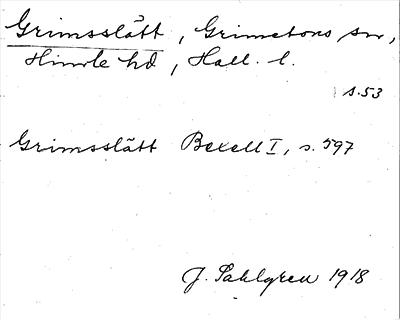 Grimsslätt, Grimetons sn,
Himle hd, Hall. l.
s. 53
Grimsslätt Bexell I, s. 597
J. Sahlgren 1918